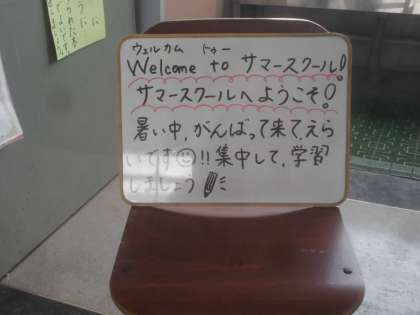 ウェルカム トゥー
Welcome to サマースクール!
サマースクールへようこそ!
暑い中,がんばって来てえら
いです!!集中して,学習
しましょう